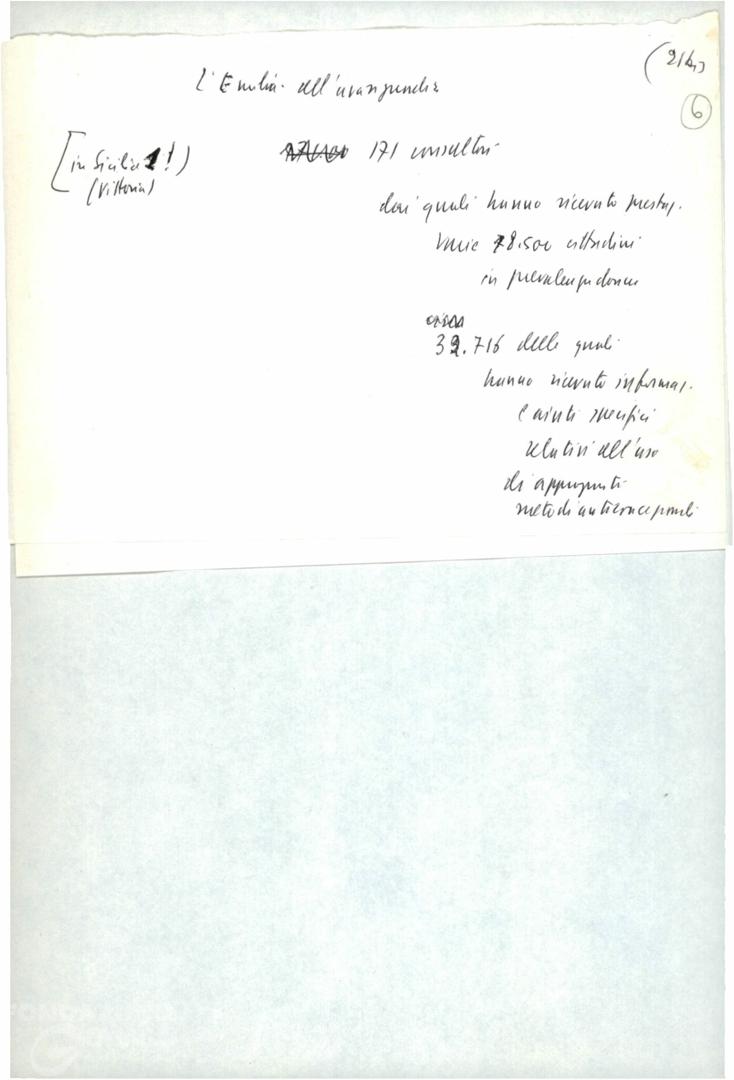 (2/4)
6
L'Emilia all'avanguardia
[in Sicilia 1!)
(Vittoria)
171 consultori
dai quali hanno ricevuto prestaz.
varie 78.500 cittadini
in prevalenza donne
39.716 delle quali
hanno ricevuto informaz.
e aiuti specifici
relativi all'uso
di appropriati
metodi anticoncezionali
FONDAZIONE